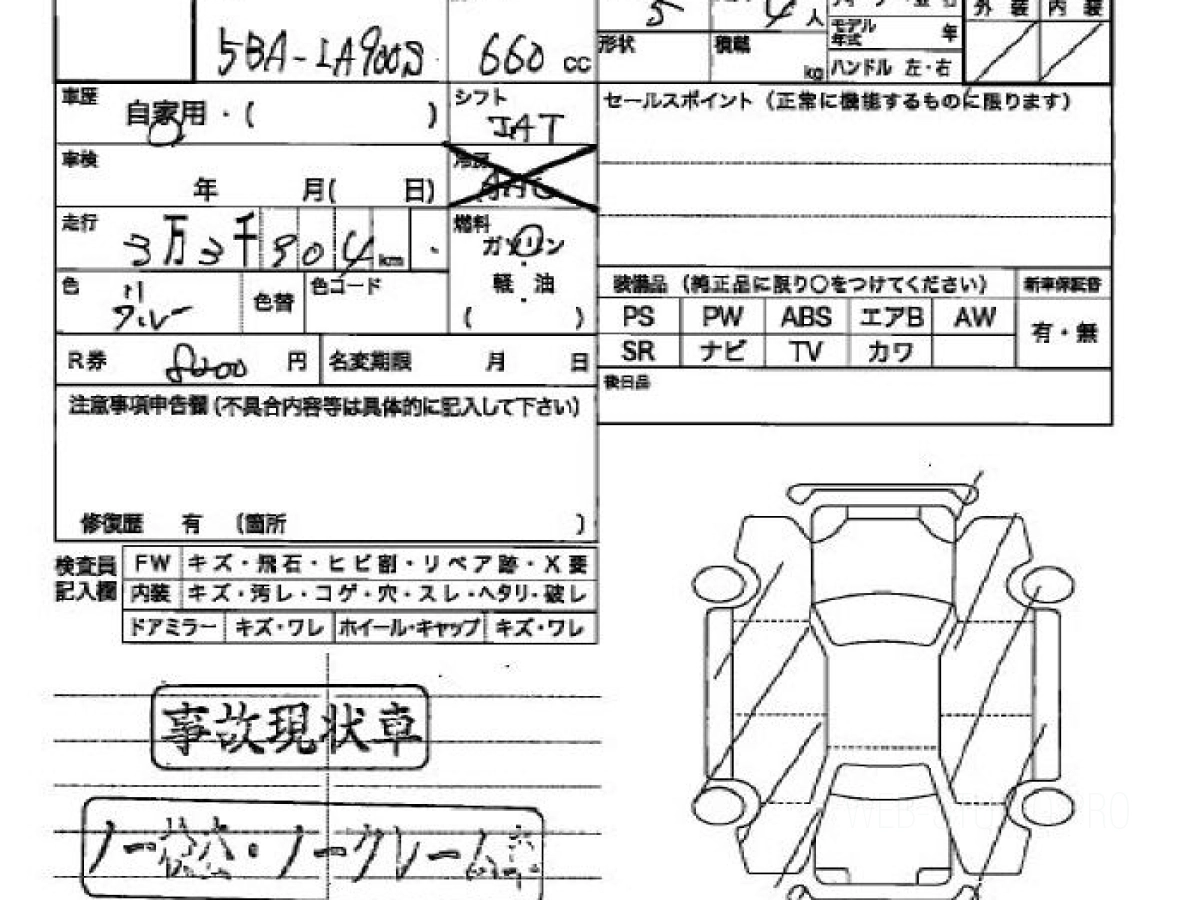 外装 内装
5 4人
モデル年式 年
5BA-LA900S 660 cc
形状 積載 kg
ハンドル 左・右
車歴 自家用・( )
シフト IAT
セールスポイント (正常に機能するものに限ります)
車検 年 月( 日)
冷房 AAC
走行 3万3千904km
燃料 ガソリン
軽油
( )
色 グレー
色替 色コード
装備品 (純正品に限り○をつけてください) 新車保証書
PS PW ABS エアB AW
SR ナビ TV カワ
有・無
R券 8200 円 名変期限 月 日
後日品
注意事項申告欄(不具合内容等は具体的に記入して下さい)
修復歴 有 (箇所 )
検査員記入欄
FW キズ・飛石・ヒビ割・リペア跡・X要
内装 キズ・汚レ・コゲ・穴・スレ・ヘタリ・破レ
ドアミラー キズ・ワレ ホイール・キャップ キズ・ワレ
事故現状車
ノー ・ノークレーム